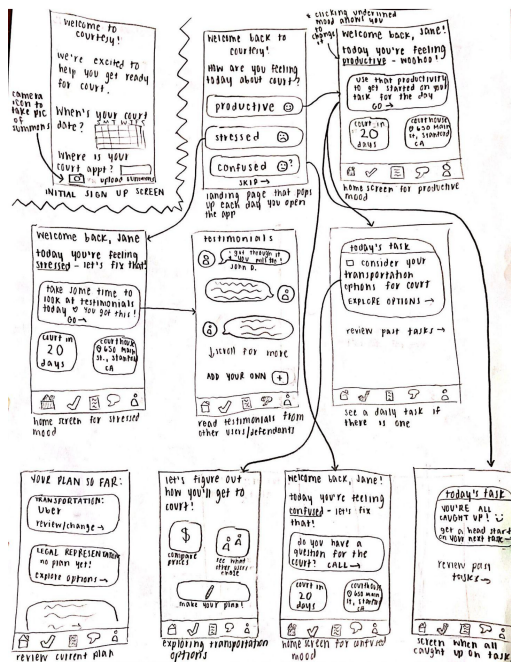 welcome to
courtesy!
we're excited to
help you get ready
for court.
When's your court
date?
S M T W T F S
Where is your
court appt?
upload summons
camera
icon to
take pic
of
summons
INITIAL SIGN UP SCREEN
welcome back to
courtesy!
How are you feeling
today about court?
productive
stressed
confused ?
SKIP →
landing page that pops
up each day you open
the app
* clicking underlined
mood allows you
to
change
it
welcome back, Jane!
today you're feeling
productive - woohoo!
use that productivity
to get started on your
task for the day
GO →
court in
20
days
courthouse
@ 650 main
st, stanford
CA
home screen for productive
mood
welcome back, Jane
today you're feeling
stressed - let's fix that!
take some time to
look at testimonials
today ♡ you got this!
Go →
court in
20
days
courthouse
@ 650 main
st., stanford
CA
home screen for stressed
mood
testimonials
i got through it
you will too!
John D.
↓ scroll for more
ADD YOUR OWN +
read testimonials from
other users/defendants
today's task
□ consider your
transportation
options for court
EXPLORE OPTIONS →
review past tasks →
see a daily task if
there is one
YOUR PLAN SO FAR:
TRANSPORTATION:
Uber
review/change →
LEGAL REPRESENTATION
no plan yet!
explore options →
review current plan
let's figure out
how you'll get to
court!
$
compare
prices
see what
other users
chose
make your plan!
exploring transportation
options
welcome back, Jane!
today you're feeling
confused - let's fix
that!
do you have a
question for the
court? CALL →
court in
20
days
courthouse
@ 650 main
st, stanford
CA
home screen for
mood
today's task
YOU'RE ALL
CAUGHT UP!
get a head start
on your next task →
review past
tasks →
screen when all
caught up on task